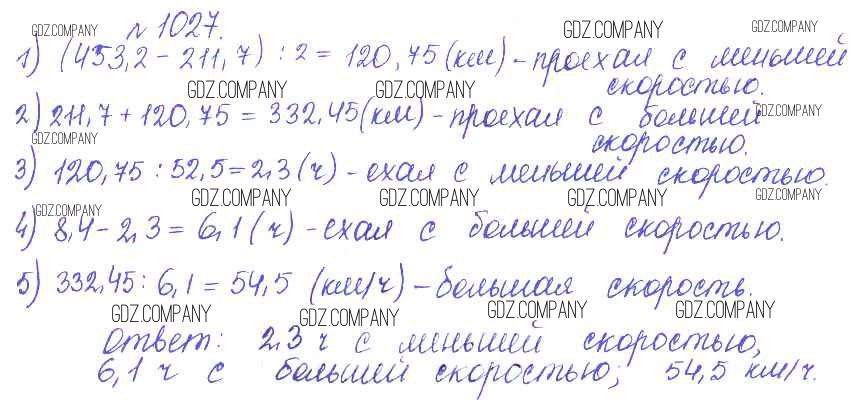 GDZ.COMPANY № 1027. GDZ.COMPANY GDZ.COMPANY
1) (453,2 - 211,7) : 2 = 120,75 (км) - проехал с меньшей
GDZ.COMPANY GDZ.COMPANY скоростью.
2) 211,7 + 120,75 = 332,45 (км) - проехал с большей GDZ.COMPANY
GDZ.COMPANY скоростью.
3) 120,75 : 52,5 = 2,3 (ч) - ехал с меньшей скоростью.
GDZ.COMPANY GDZ.COMPANY GDZ.COMPANY GDZ.COMPANY
GDZ.COMPANY
4) 8,4 - 2,3 = 6,1 (ч) - ехал с большей скоростью.
5) 332,45 : 6,1 = 54,5 (км/ч) - большая скорость.
GDZ.COMPANY GDZ.COMPANY GDZ.COMPANY GDZ.COMPANY
Ответ: 2,3 ч с меньшей скоростью,
6,1 ч с большей скоростью; 54,5 км/ч.